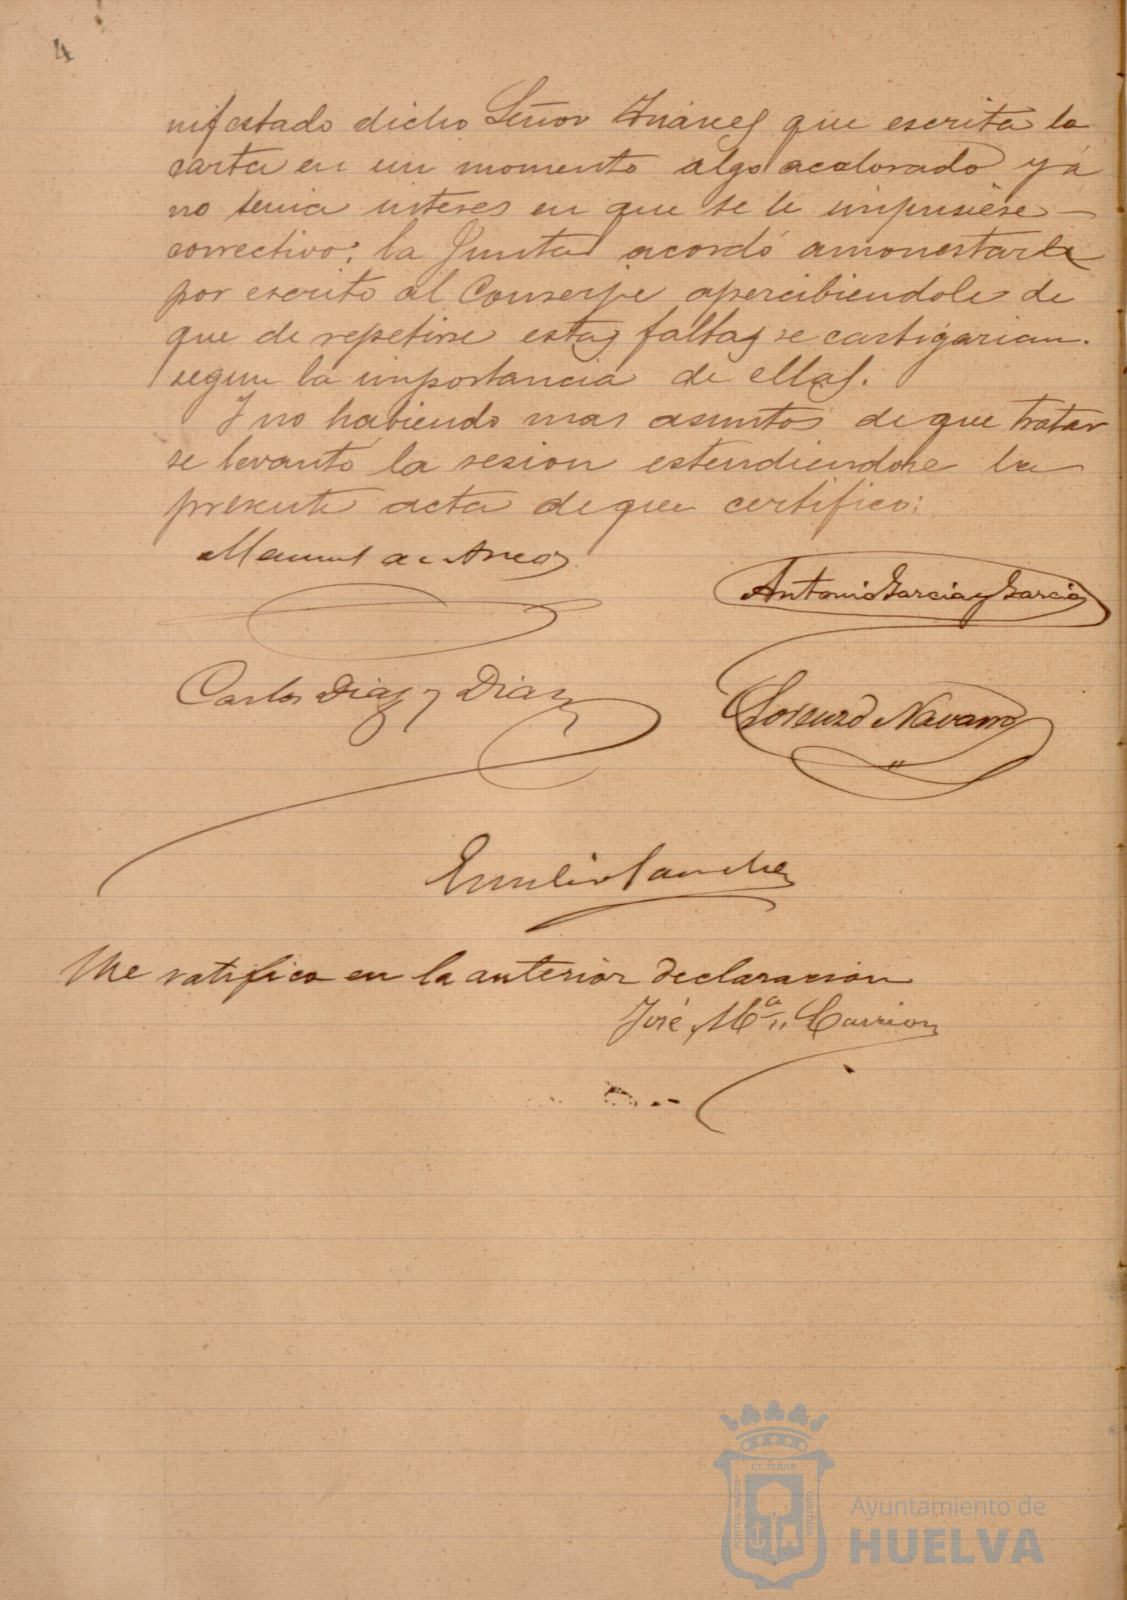 4
nifestado dicho Señor Suárez que escrita la
carta en un momento algo acalorado yá
no tenia interes en que se le impusiese
correctivo; la Junta acordó amonestarle
por escrito al Conserje apercibiendole de
que de repetirse estas faltas se castigarian
segun la importancia de ellas.
Y no habiendo mas asuntos de que tratar
se levantó la sesion estendiendose la
presente acta de que certifico:
Manuel de
Antonio Garcia y Garcia
Carlos Diaz y Diaz
Lorenzo Navarro
Emilio Sanchez
Me ratifico en la anterior declaración
José Mª Carrion
ET TERRÆ
PORTUS MARIS
CUSTODIA
Ayuntamiento de
HUELVA